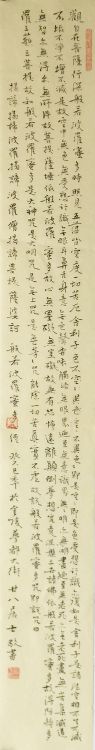 觀自在菩薩行深般若波羅蜜多時照見五蘊皆空度一切苦厄舍利子色不異空空不異色色即是空空即是色受想行識亦復如是舍利子是諸法空相不生不滅
不垢不淨不增不減是故空中無色無受想行識無眼耳鼻舌身意無色聲香味觸法無眼界乃至無意識界無無明亦無無明盡乃至無老死亦無老死盡無苦集滅道
無智亦無得以無所得故菩提薩埵依般若波羅蜜多故心無罣礙無罣礙故無有恐怖遠離顛倒夢想究竟涅槃三世諸佛依般若波羅蜜多故得阿耨多
羅三藐三菩提故知般若波羅蜜多是大神咒是大明咒是無上咒是無等等咒能除一切苦真實不虛故說般若波羅蜜多咒即說咒曰
揭諦揭諦波羅揭諦波羅僧揭諦菩提薩婆訶 般若波羅蜜多心經 居士敬書